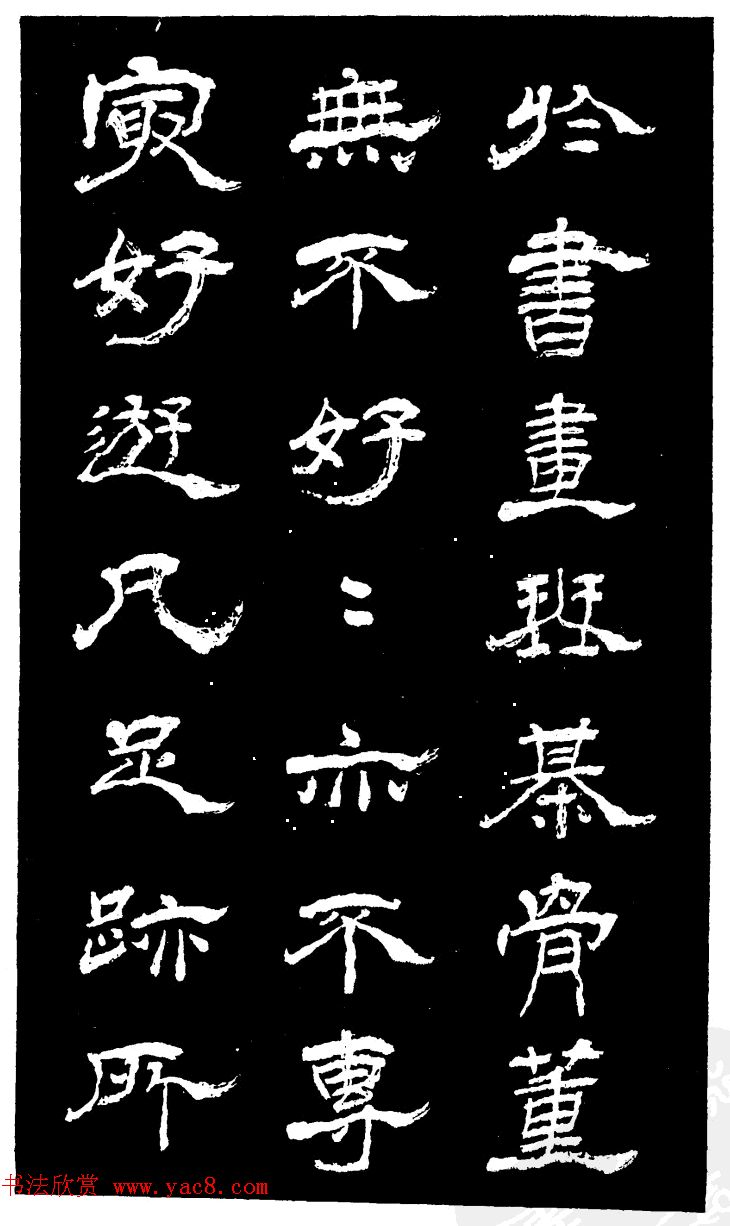 於書畫班棊骨董
無不好〻亦不專
寂好遊凡足跡所
书法欣赏 www.yac8.com